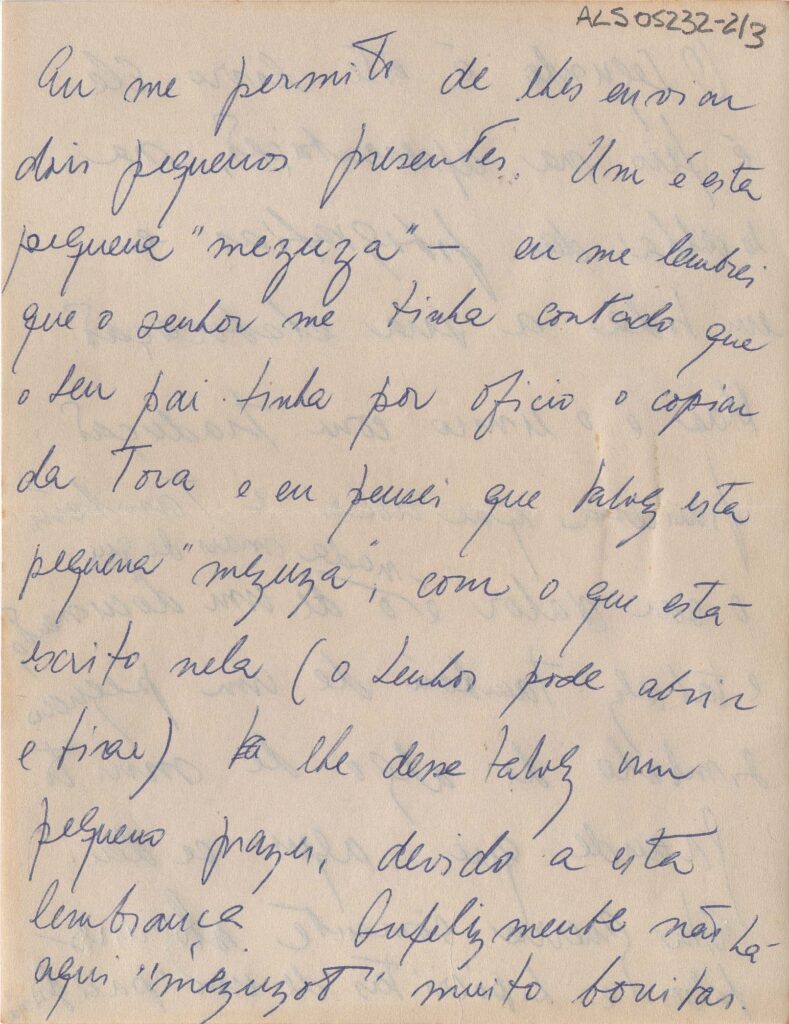 ALS05232-2/3
Eu me permiti de lhes enviar
dois pequenos presentes. Um é esta
pequena "mezuza" — eu me lembrei
que o senhor me tinha contado que
o seu pai tinha por oficio o copiar
da Tora e eu pensei que talvez esta
pequena "mezuza", com o que está
escrito nela (o senhor pode abrir
e tirar) lhe desse talvez um
pequeno prazer, devido a esta
lembrança. Infelizmente não há
aqui "mezuzot" muito bonitas.